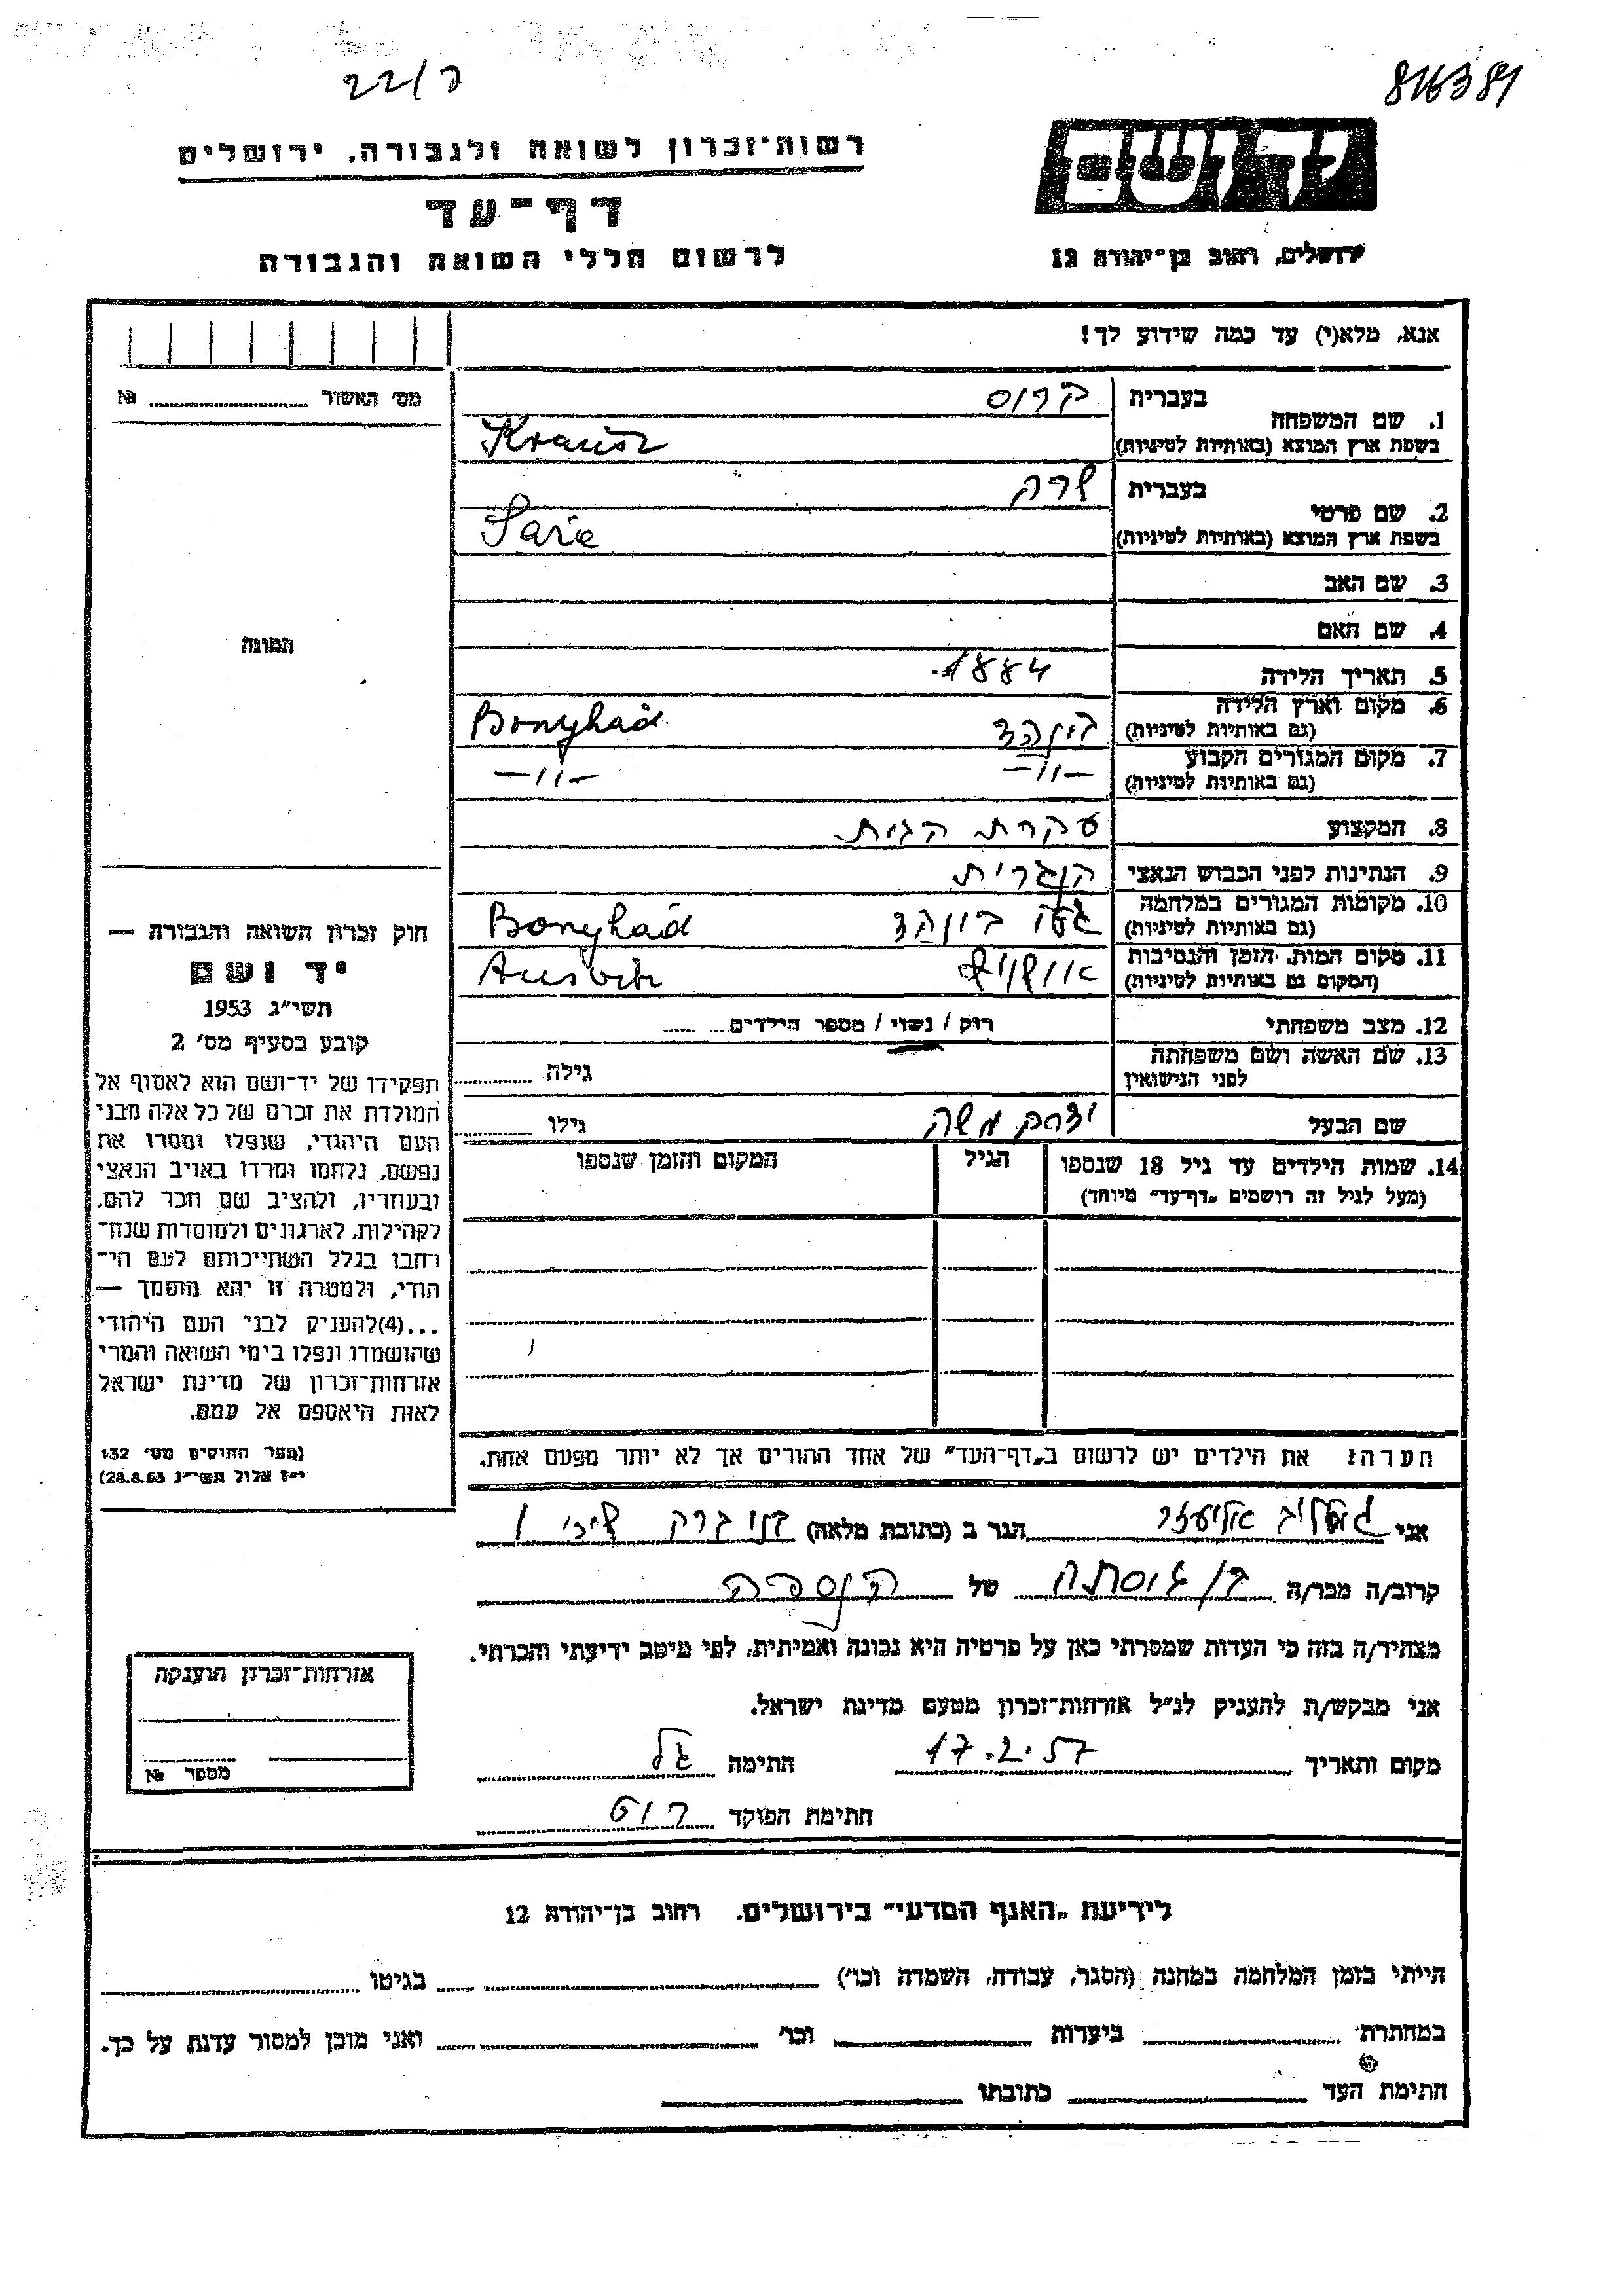 22/ק
816389
רשות־זכרון לשואה ולגבורה, ירושלים
יד ושם
דף־עד
לרשום חללי השואה והגבורה
ירושלים, רחוב בן־יהודה 12
אנא, מלא(י) עד כמה שידוע לך!
מס׳ האשור № 
1. שם המשפחה בעברית קרוס
בשפת ארץ המוצא (באותיות לטיניות) Krausz
2. שם פרטי בעברית שרה
בשפת ארץ המוצא (באותיות לטיניות) Sari
3. שם האב
4. שם האם
תמונה
5. תאריך הלידה 1884.
6. מקום וארץ הלידה (גם באותיות לטיניות) בונהד Bonyhád
7. מקום המגורים הקבוע (גם באותיות לטיניות) —״— —״—
8. המקצוע עקרת הבית
9. הנתינות לפני הכבוש הנאצי הנגרית
10. מקומות המגורים במלחמה (גם באותיות לטיניות) גטו בונהד Bonyhád
11. מקום המות, הזמן והנסיבות (המקום גם באותיות לטיניות) אושויץ Ausvitz
12. מצב משפחתי רוק / נשוי / מספר הילדים
13. שם האשה ושם משפחתה לפני הנישואין גילה
שם הבעל יצחק משה גילו
14. שמות הילדים עד גיל 18 שנספו הגיל המקום והזמן שנספו
(מעל לגיל זה רושמים „דף־עד״ מיוחד)
חוק זכרון השואה והגבורה —
יד ושם
תשי״ג 1953
קובע בסעיף מס׳ 2
תפקידו של יד־ושם הוא לאסוף אל
המולדת את זכרם של כל אלה מבני
העם היהודי, שנפלו ומסרו את
נפשם, נלחמו ומרדו באויב הנאצי
ובעוזריו, ולהציב שם וזכר להם,
לקהילות, לארגונים ולמוסדות שנח־
רבו בגלל השתייכותם לעם הי־
הודי, ולמטרה זו יהא מוסמך —
...(4)להעניק לבני העם היהודי
שהושמדו ונפלו בימי השואה והמרי
אזרחות־זכרון של מדינת ישראל
לאות היאספם אל עמם.
(ספר החוקים מס׳ 132
י״ז אלול תשי״ג 28.8.53)
הערה: את הילדים יש לרשום ב„דף־העד״ של אחד ההורים אך לא יותר מפעם אחת.
אני גוטליב אליעזר הגר ב (כתובת מלאה) בני ברק
קרוב/ה מכר/ה בן גיסתה של הנספה
מצהיר/ה בזה כי העדות שמסרתי כאן על פרטיה היא נכונה ואמיתית, לפי מיטב ידיעתי והכרתי.
אני מבקש/ת להעניק לנ״ל אזרחות־זכרון מטעם מדינת ישראל.
מקום ותאריך 17.2.57 חתימה גל
חתימת הפוקד רוט
אזרחות־זכרון הוענקה
מספר №
לידיעת „האגף המדעי״ בירושלים, רחוב בן־יהודה 12
הייתי בזמן המלחמה במחנה (הסגר, עבודה, השמדה וכו׳) בגיטו
במחתרת ביערות וכו׳ ואני מוכן למסור עדות על כך.
חתימת העד כתובתו